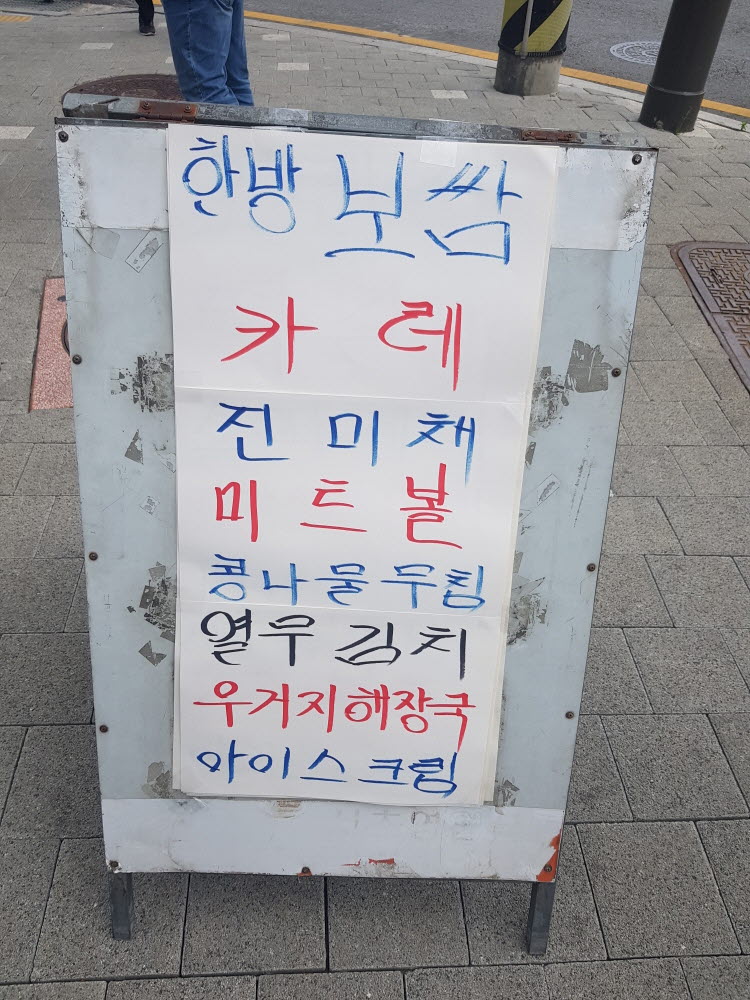 한방 보쌈
카레
진미채
미트볼
콩나물무침
열무김치
우거지해장국
아이스크림